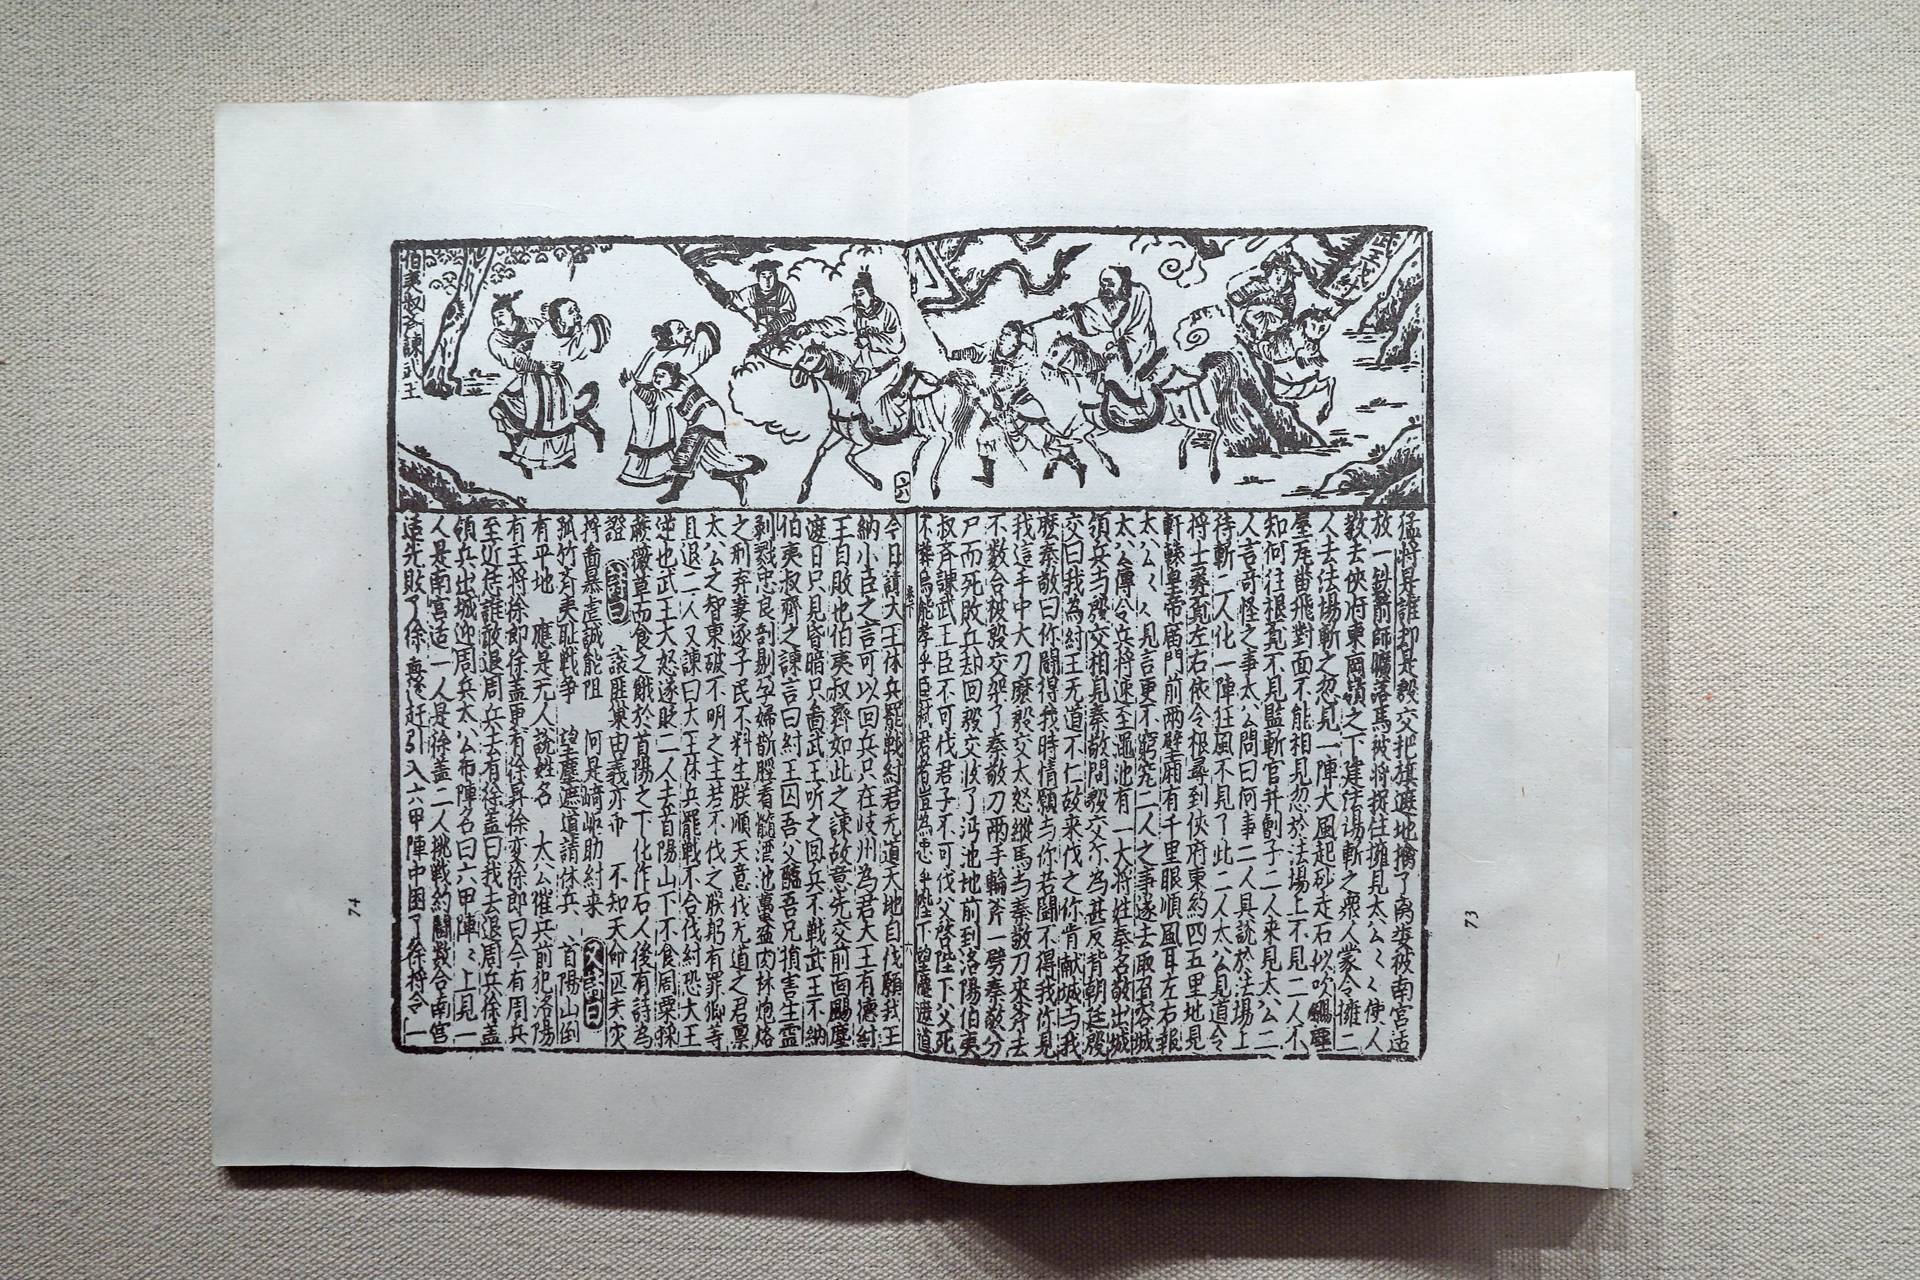 伯夷叔齐諫武王
六
猛将是誰却是殷交把旗遮地擒了离婁被南宮适
放一箭師曠落馬被将捉住擁見太公〻〻使人
教去俠府東兩嶺之下建法场斬之衆人蒙令擁二
人去法場斬之忽見一陣大風起砂走石以吹
屋瓦番飛對面不能相見忽於法場上不見二人不
知何往根覓不見監斬官并劊子二人来見太公二
人言奇怪之事太公問曰何事二人具說於法場上
待斬二人化一陣狂風不見了此二人太公見道令
将士尋覓左右依令根尋到俠府東約四五里地見
軒轅皇帝庿門前兩壁廂有千里眼順風耳左右報
太公〻〻見言更不窮究二人之事遂去取城
太公傳令兵将速至澠池有一大将姓秦名敬出城
領兵与殷交相見秦敬問殷交尔為甚反背朝廷殷
交曰我為紂王无道不仁故来伐之你肯献城与我
麽秦敬曰你鬪得我時情願与你若鬪不得我你見
我這手中大刀麽殷交大怒縱馬与秦敬刀来斧去
不数合被殷交架了秦敬刀兩手輪斧一劈秦敬分
尸而死敗兵却回殷交收了沔池地前到洛陽伯夷
叔斉諫武王臣不可伐君子不可伐父啓陛下父死
不葬焉能孝乎臣弑君者豈為忠乎陛下望塵遮道
卷下 六
今日請大王休兵罷戦紂君无道天地自伐願我王
納小臣之言可以回兵只在岐州為君大王有德紂
王自敗也伯夷叔齊如此之諫故意先交前面颺塵
遮日只見昏暗只啚武王听之回兵不戦武王不納
伯夷叔齊之諫言曰紂王囚吾父醢吾兄損害生霊
剥戮忠良剖剔孕婦斮脛看髓酒池蠆盆肉林炮烙
之刑弃妻逐子民不料生朕順天意伐无道之君禀
太公之智東破不明之主若不伐之朕躬有罪卿等
且退二人又諫曰大王休兵罷戦不合伐紂恐大王
逆也武王大怒遂貶二人去首陽山下不食周粟採
蕨薇草而食之餓於首陽之下化作石人後有詩為
證 詩曰 讓匪巢由義亦乖 不知天命匹夫灾
将啚暴虐誠能阻 何是崎岖助紂来 又詩曰
孤竹斉夷恥戦争 望塵遮道請休兵 首陽山倒
有平地 應是无人説姓名 太公催兵前犯洛陽
有王将徐郎徐盖更有徐昇徐变徐郎曰今有周兵
至近恁誰敢退周兵去有徐盖曰我去退周兵徐盖
領兵出城迎周兵太公布陣名曰六甲陣〻上見一
人是南宮适一人是徐盖二人挑戦約鬭数合南宮
适先敗了徐盖後赶引入六甲陣中囲了徐将令一
74
73